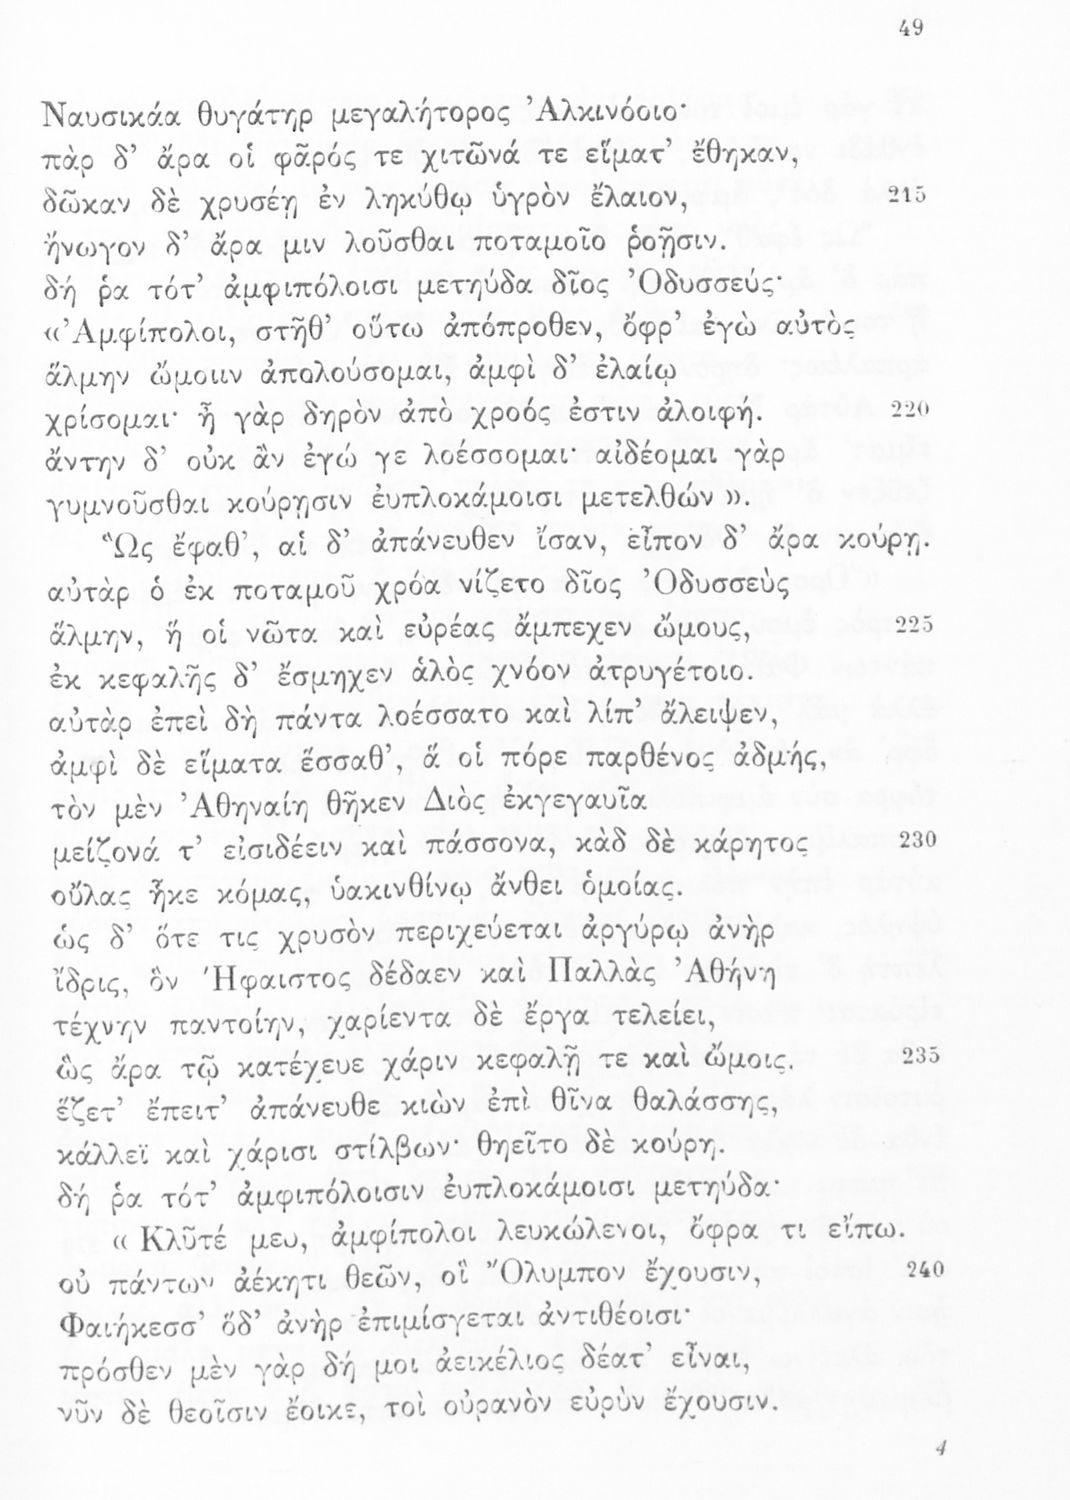 49
Ναυσικάα θυγάτηρ μεγαλήτορος Ἀλκινόοιο·
πὰρ δ’ ἄρα οἱ φᾶρός τε χιτῶνά τε εἵματ’ ἔθηκαν,
δῶκαν δὲ χρυσέῃ ἐν ληκύθῳ ὑγρὸν ἔλαιον, 215
ἤνωγον δ’ ἄρα μιν λοῦσθαι ποταμοῖο ῥοῇσιν.
δή ῥα τότ’ ἀμφιπόλοισι μετηύδα δῖος Ὀδυσσεύς·
«Ἀμφίπολοι, στῆθ’ οὕτω ἀπόπροθεν, ὄφρ’ ἐγὼ αὐτὸς
ἅλμην ὤμοιιν ἀπολούσομαι, ἀμφὶ δ’ ἐλαίῳ
χρίσομαι· ἦ γὰρ δηρὸν ἀπὸ χροός ἐστιν ἀλοιφή. 220
ἄντην δ’ οὐκ ἂν ἐγώ γε λοέσσομαι· αἰδέομαι γὰρ
γυμνοῦσθαι κούρῃσιν ἐυπλοκάμοισι μετελθών».
Ὣς ἔφαθ’, αἱ δ’ ἀπάνευθεν ἴσαν, εἶπον δ’ ἄρα κούρῃ.
αὐτὰρ ὁ ἐκ ποταμοῦ χρόα νίζετο δῖος Ὀδυσσεὺς
ἅλμην, ἥ οἱ νῶτα καὶ εὐρέας ἄμπεχεν ὤμους, 225
ἐκ κεφαλῆς δ’ ἔσμηχεν ἁλὸς χνόον ἀτρυγέτοιο.
αὐτὰρ ἐπεὶ δὴ πάντα λοέσσατο καὶ λίπ’ ἄλειψεν,
ἀμφὶ δὲ εἵματα ἕσσαθ’, ἅ οἱ πόρε παρθένος ἀδμής,
τὸν μὲν Ἀθηναίη θῆκεν Διὸς ἐκγεγαυῖα
μείζονά τ’ εἰσιδέειν καὶ πάσσονα, κὰδ δὲ κάρητος 230
οὔλας ἧκε κόμας, ὑακινθίνῳ ἄνθει ὁμοίας.
ὡς δ’ ὅτε τις χρυσὸν περιχεύεται ἀργύρῳ ἀνὴρ
ἴδρις, ὃν Ἥφαιστος δέδαεν καὶ Παλλὰς Ἀθήνη
τέχνην παντοίην, χαρίεντα δὲ ἔργα τελείει,
ὣς ἄρα τῷ κατέχευε χάριν κεφαλῇ τε καὶ ὤμοις. 235
ἕζετ’ ἔπειτ’ ἀπάνευθε κιὼν ἐπὶ θῖνα θαλάσσης,
κάλλεϊ καὶ χάρισι στίλβων· θηεῖτο δὲ κούρη.
δή ῥα τότ’ ἀμφιπόλοισιν ἐυπλοκάμοισι μετηύδα·
«Κλῦτέ μευ, ἀμφίπολοι λευκώλενοι, ὄφρα τι εἴπω.
οὐ πάντων ἀέκητι θεῶν, οἳ Ὄλυμπον ἔχουσιν, 240
Φαιήκεσσ’ ὅδ’ ἀνὴρ ἐπιμίσγεται ἀντιθέοισι·
πρόσθεν μὲν γὰρ δή μοι ἀεικέλιος δέατ’ εἶναι,
νῦν δὲ θεοῖσιν ἔοικε, τοὶ οὐρανὸν εὐρὺν ἔχουσιν.
4